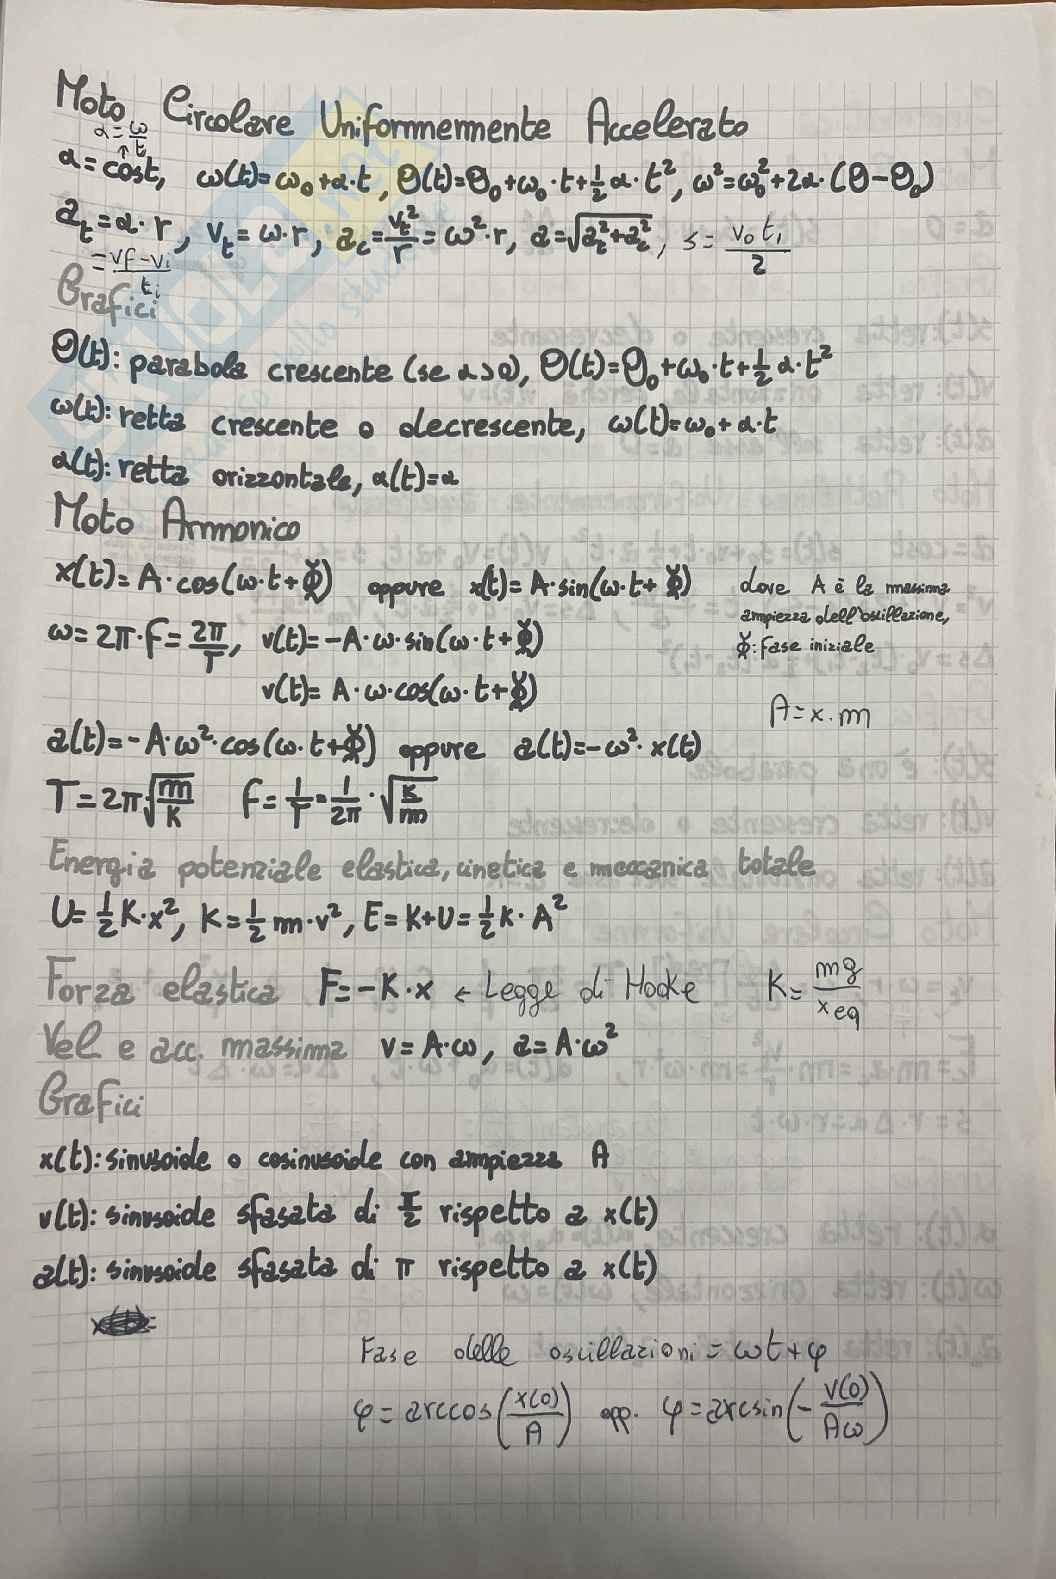 Moto Circolare Uniformemente Accelerato
α = ω/t
↑
α = cost, ω(t)=ω₀+α·t, Θ(t)=Θ₀+ω₀·t+½α·t², ω²=ω₀²+2α·(Θ-Θ₀)
a_t=α·r, v_t=ω·r, a_c=v_t²/r=ω²·r, a=√(a_t²+a_c²), s=v₀t₁/2
=(vf-vi)/ti
Grafici
Θ(t): parabola crescente (se α>0), Θ(t)=Θ₀+ω₀·t+½α·t²
ω(t): retta crescente o decrescente, ω(t)=ω₀+α·t
α(t): retta orizzontale, α(t)=α
Moto Armonico
x(t)=A·cos(ω·t+φ) oppure x(t)=A·sin(ω·t+φ) dove A è la massima
ampiezza dell'oscillazione,
φ: fase iniziale
ω=2π·f=2π/T, v(t)=-A·ω·sin(ω·t+φ)
v(t)=A·ω·cos(ω·t+φ)
A=x.m
a(t)=-A·ω²·cos(ω·t+φ) oppure a(t)=-ω²·x(t)
T=2π√(m/K) f=1/T=1/2π·√(K/m)
Energia potenziale elastica, cinetica e meccanica totale
U=½K·x², K=½m·v², E=K+U=½k·A²
Forza elastica F=-K·x ← Legge di Hooke K=mg/x eq
Vel e acc. massima v=A·ω, a=A·ω²
Grafici
x(t): sinusoide o cosinusoide con ampiezza A
v(t): sinusoide sfasata di π/2 rispetto a x(t)
a(t): sinusoide sfasata di π rispetto a x(t)
Fase delle oscillazioni = ωt+φ
φ=arccos(x(0)/A) opp. φ=arcsin(-v(0)/Aω)